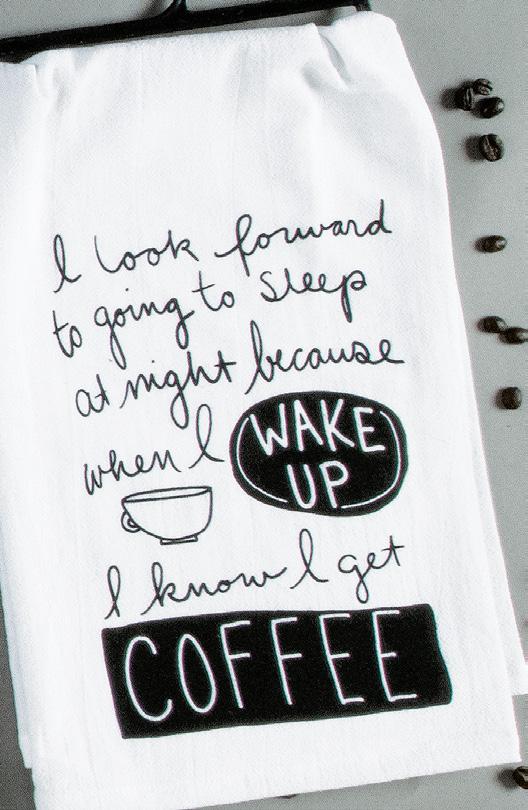 I look forward
to going to sleep
at night because
when I WAKE
UP
I know I get
COFFEE